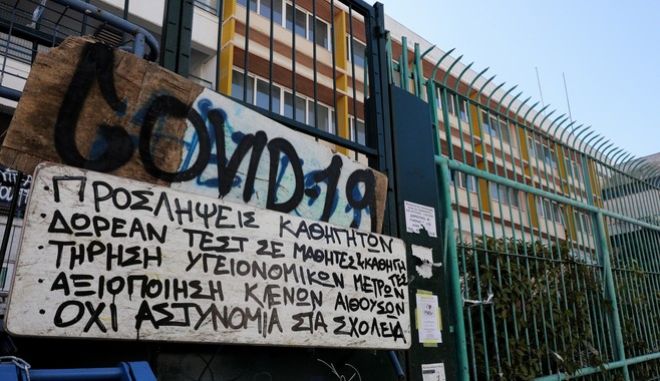 COVID-19
· ΠΡΟΣΛΗΨΕΙΣ ΚΑΘΗΓΗΤΩΝ
· ΔΩΡΕΑΝ ΤΕΣΤ ΣΕ ΜΑΘΗΤΕΣ & ΚΑΘΗΓΗΤΕΣ
· ΤΗΡΗΣΗ ΥΓΕΙΟΝΟΜΙΚΩΝ ΜΕΤΡΩΝ
· ΑΞΙΟΠΟΙΗΣΗ ΚΕΝΩΝ ΑΙΘΟΥΣΩΝ
· ΟΧΙ ΑΣΤΥΝΟΜΙΑ ΣΤΑ ΣΧΟΛΕΙΑ